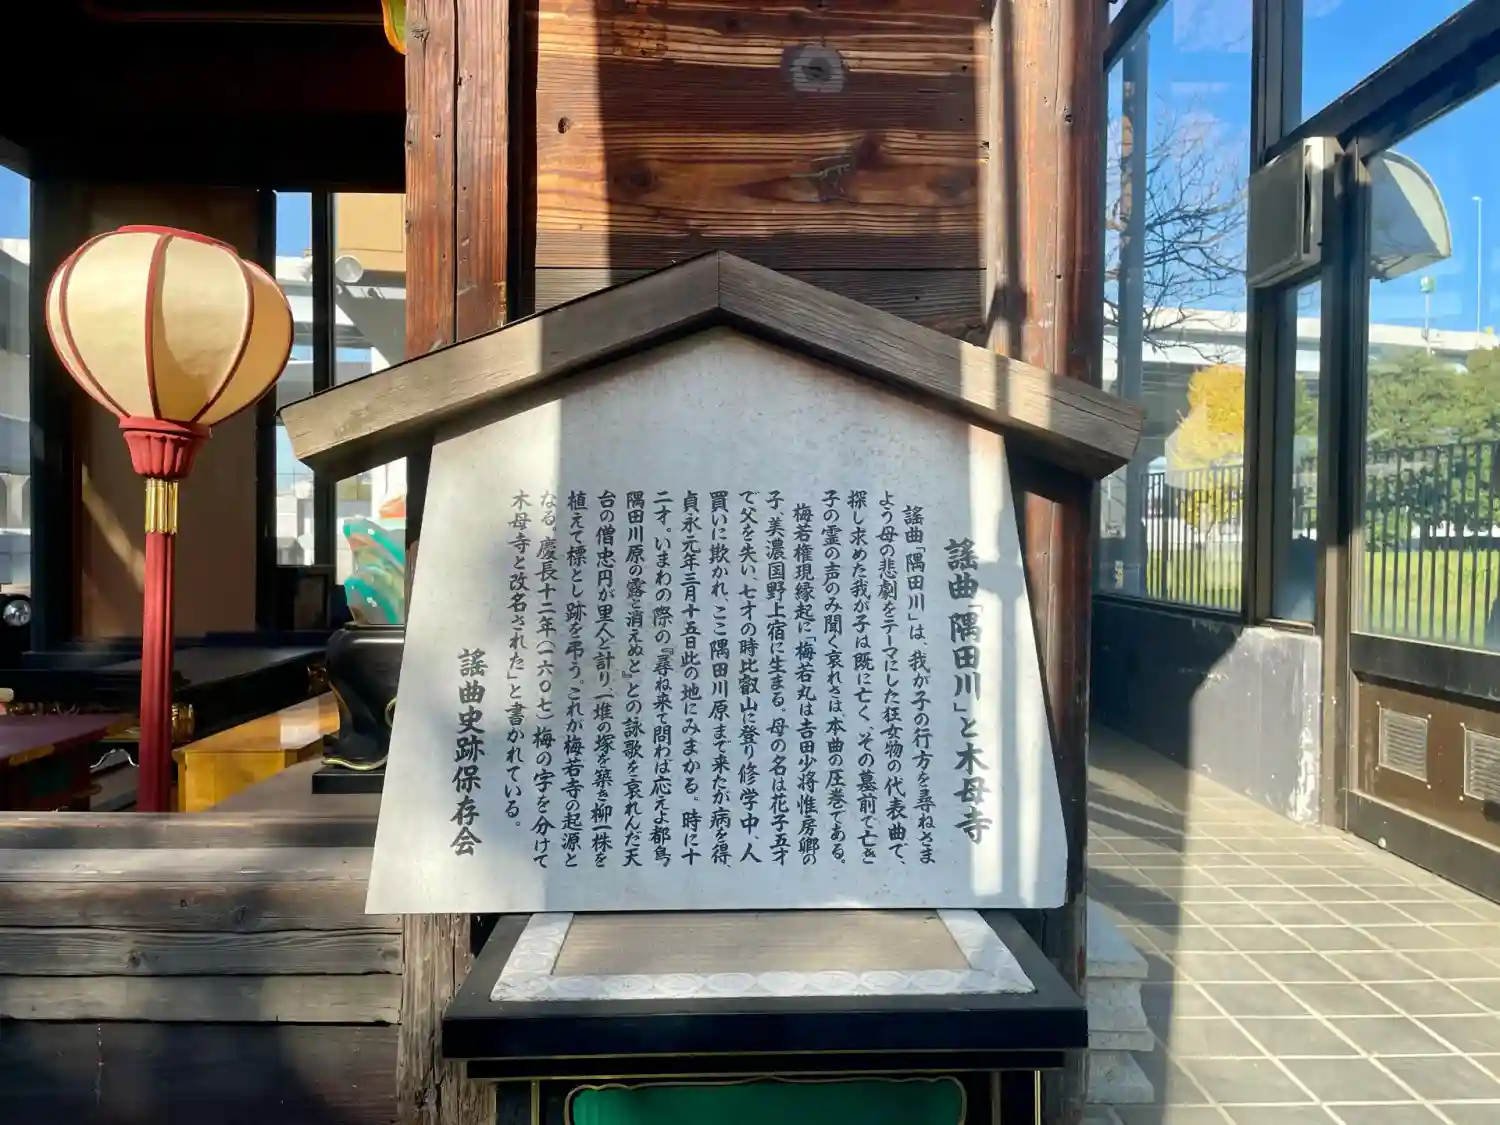 謡曲「隅田川」と木母寺
謡曲「隅田川」は、我が子の行方を尋ねさま
よう母の悲劇をテーマにした狂女物の代表曲で、
探し求めた我が子は既に亡く、その墓前で亡き
子の霊の声のみ聞く哀れさは本曲の圧巻である。
梅若権現縁起に「梅若丸は吉田少将惟房卿の
子、美濃国野上宿に生まる。母の名は花子五才
で父を失い、七才の時比叡山に登り修学中、人
買いに欺かれ、ここ隅田川原まで来たが病を得、
貞永元年三月十五日此の地にみまかる。時に十
二才。いまわの際の『尋ね来て問わば応えよ都鳥
隅田川原の露と消えぬと』との詠歌を哀れんだ天
台の僧忠円が里人と計り、一堆の塚を築き柳一株を
植えて標とし跡を弔う。これが梅若寺の起源と
なる。慶長十二年（一六〇七）梅の字を分けて
木母寺と改名された」と書かれている。
謡曲史跡保存会